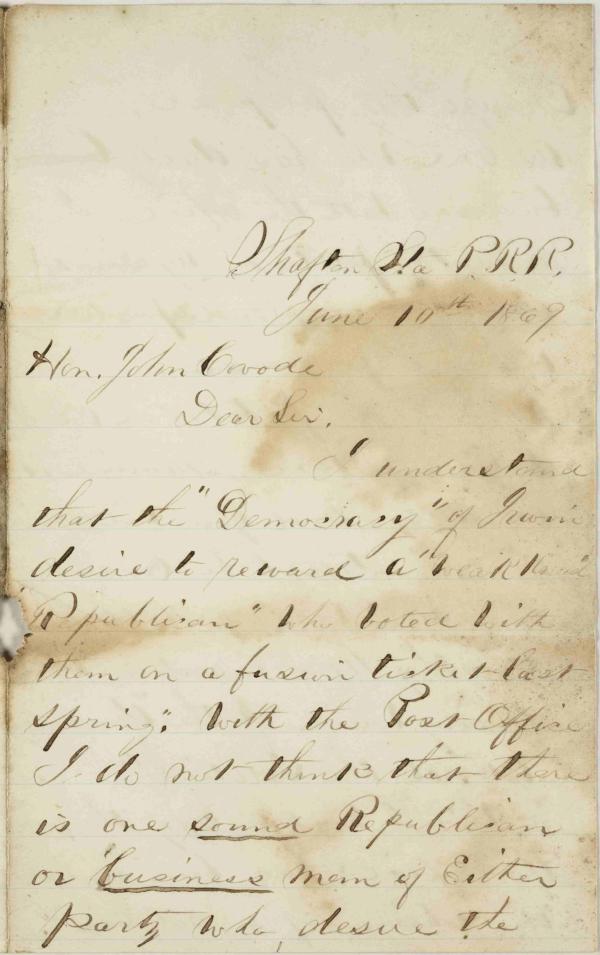 Shafton Sta P.R.R.
June 10th 1869
Hon. John Covode
Dear Sir.
I understand
that the "Democracy" of Irwin
desire to reward a "weak kneed
Republican" who voted with
them on a fusion ticket last
spring. with the Post Office
I do not think that there
is one sound Republican
or business man of Either
party who, desire the